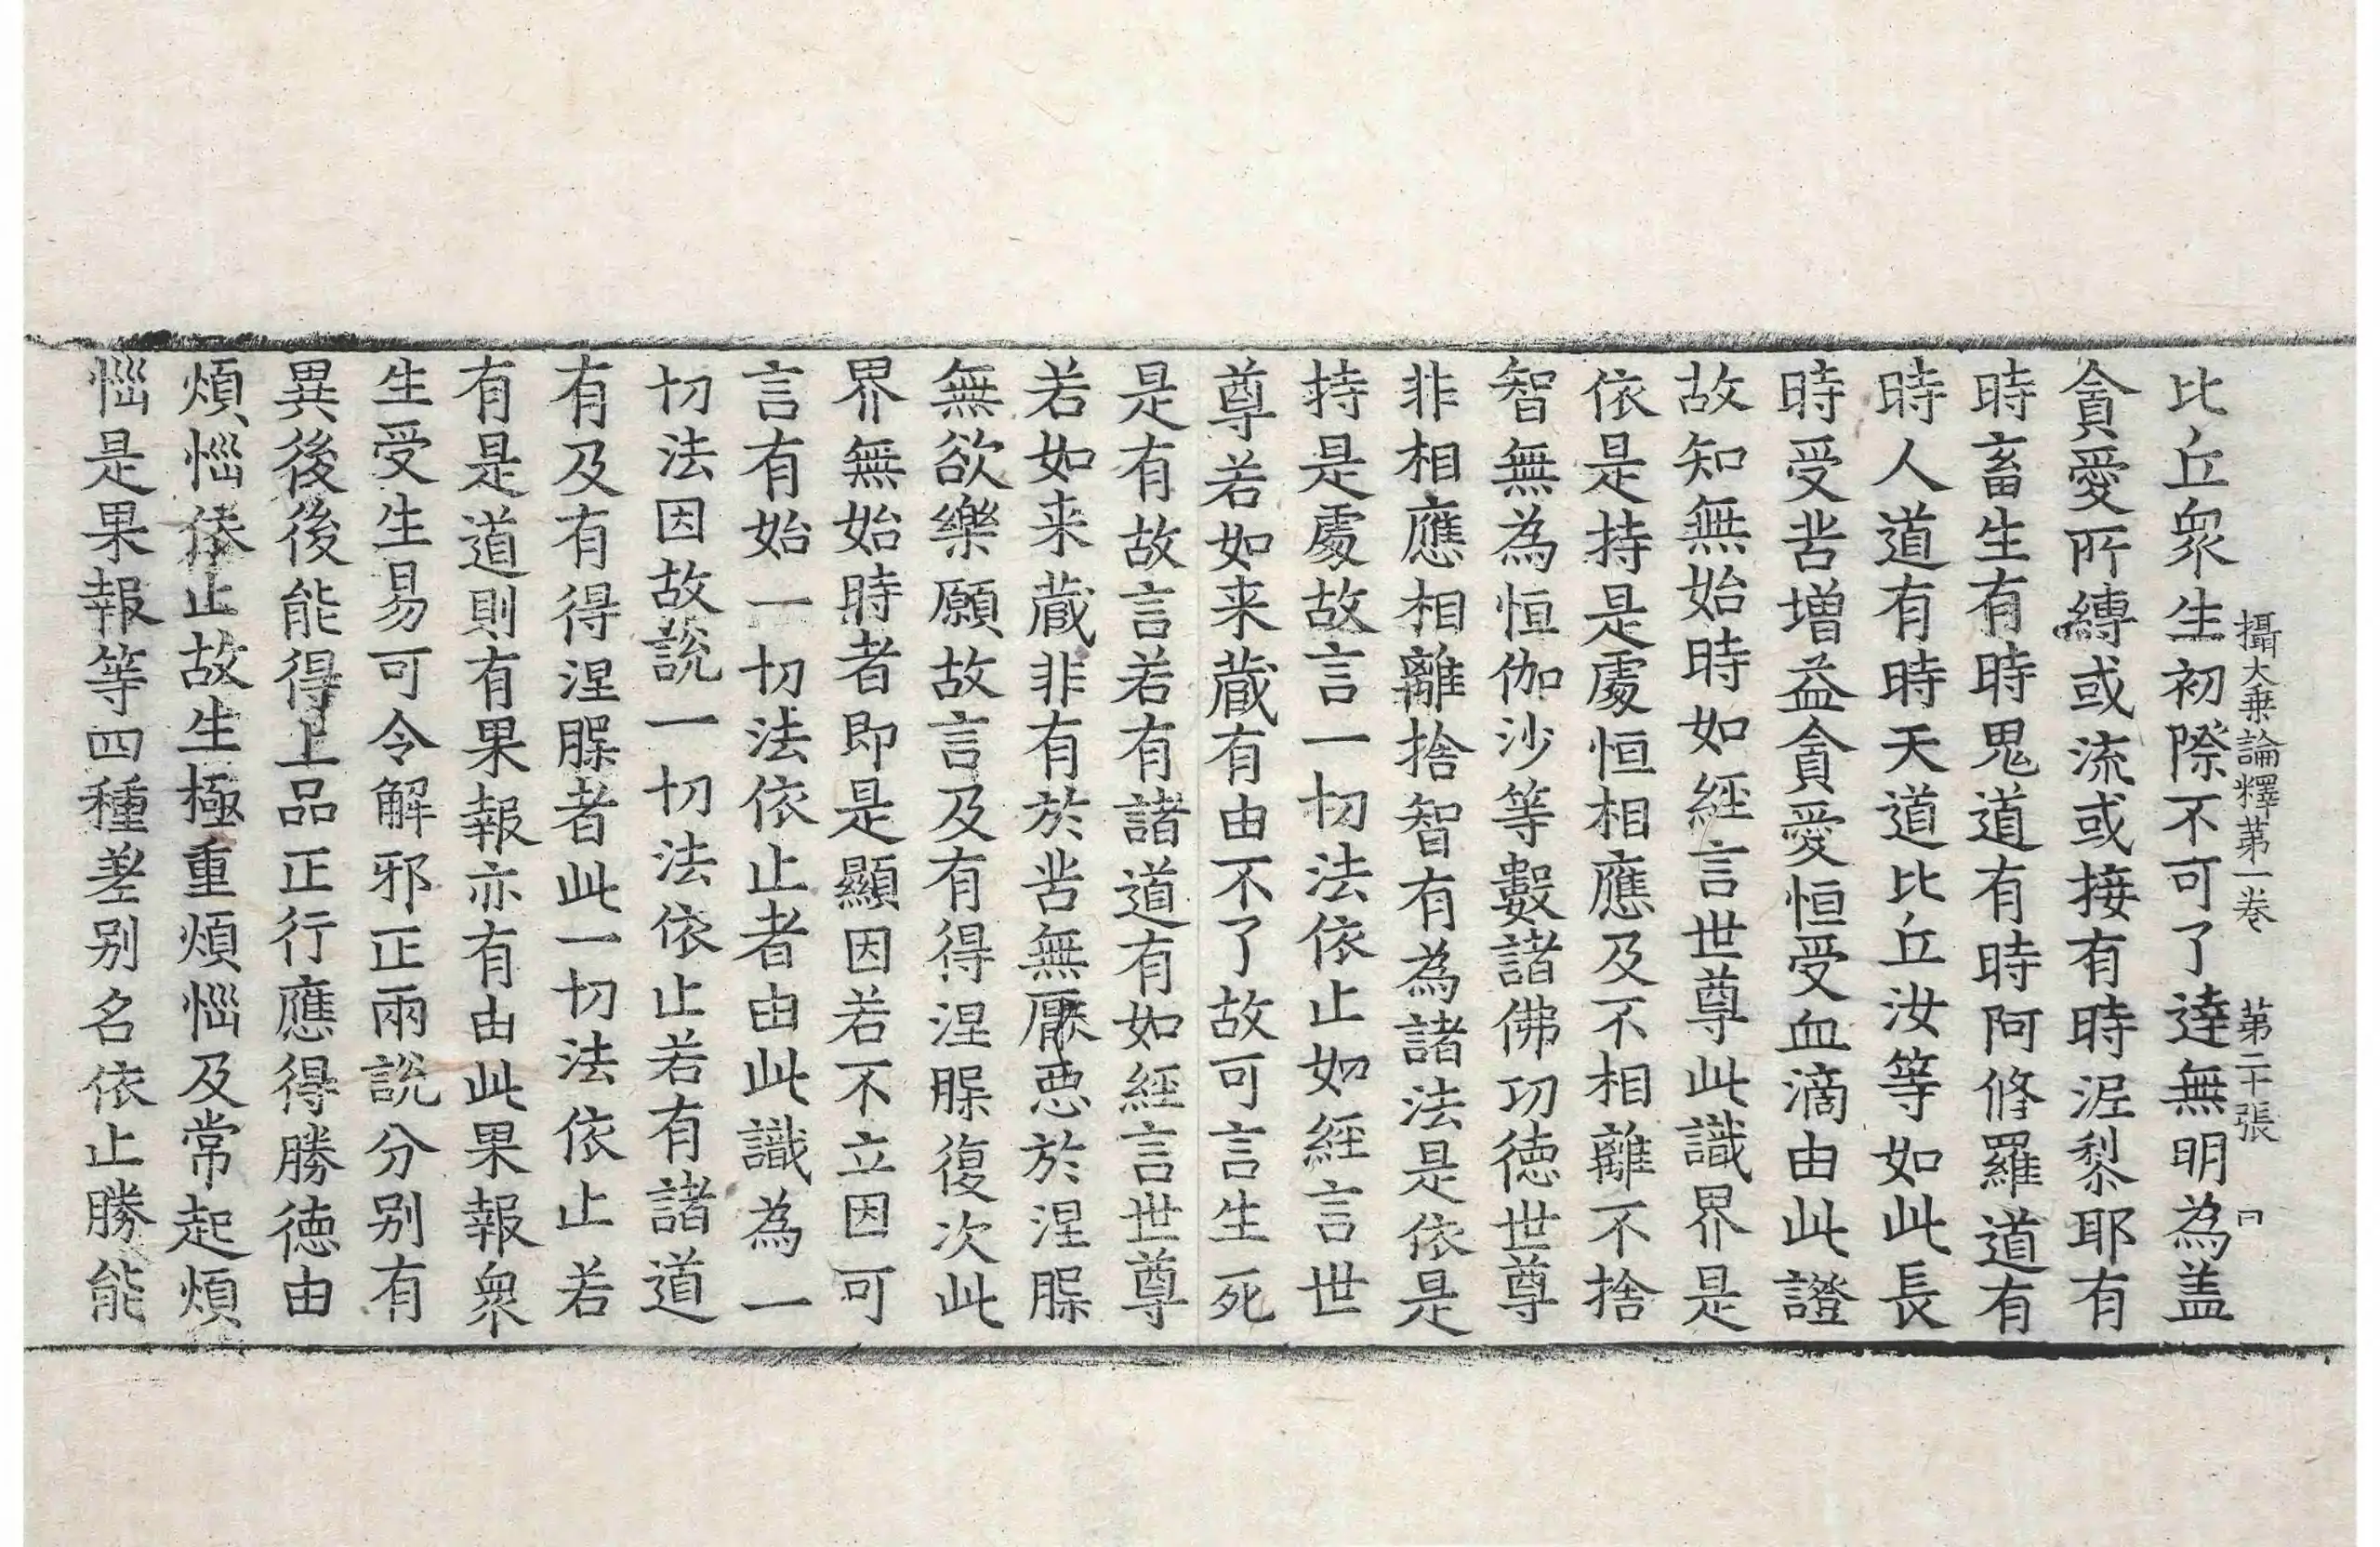 攝大乗論釋苐一卷　苐二十張　冂
比丘衆生初際不可了達無明為盖
貪愛所縛或流或接有時泥黎耶有
時畜生有時鬼道有時阿修羅道有
時人道有時天道比丘汝等如此長
時受苦增益貪愛恒受血滴由此證
故知無始時如經言世尊此識界是
依是持是處恒相應及不相離不捨
智無為恒伽沙等數諸佛功徳世尊
非相應相離捨智有為諸法是依是
持是處故言一切法依止如經言世
尊若如来藏有由不了故可言生死
是有故言若有諸道有如經言世尊
若如来藏非有於苦無厭惡於涅槃
無欲樂願故言及有得涅槃復次此
界無始時者即是顯因若不立因可
言有始一切法依止者由此識為一
切法因故說一切法依止若有諸道
有及有得涅槃者此一切法依止若
有是道則有果報亦有由此果報衆
生受生易可令解邪正兩說分别有
異後後能得上品正行應得勝徳由
煩惱依止故生極重煩惱及常起煩
惱是果報等四種差别名依止勝能